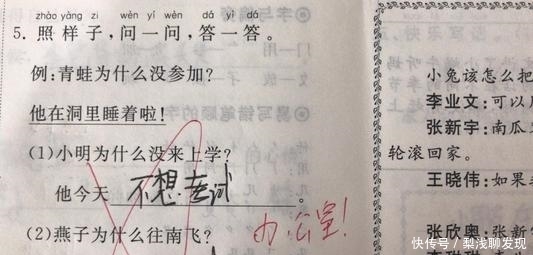 zhào yàng zi wèn yí wèn dá yì dá
5. 照样子,问一问,答一答。
例:青蛙为什么没参加?
他在洞里睡着啦!
(1)小明为什么没来上学?
他今天不想考试。
(2)燕子为什么往南飞?
办公室!
小兔该怎么把
李业文:可以用
张新宇:南瓜
轮滚回家。
王晓伟:如果
张欣奥:张新
快传号 / 梨浅聊发现